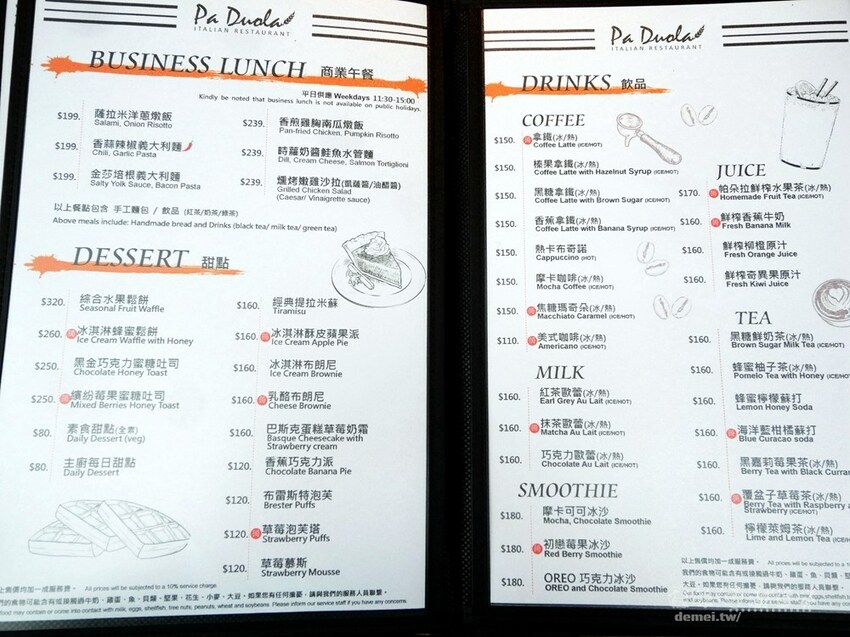 Pa Duola
ITALIAN RESTAURANT
BUSINESS LUNCH 商業午餐
平日供應 Weekdays 11:30-15:00
Kindly be noted that business lunch is not available on public holidays.
$199. 薩拉米洋蔥燉飯
Salami, Onion Risotto
$199. 香蒜辣椒義大利麵
Chili, Garlic Pasta
$199. 金莎培根義大利麵
Salty Yolk Sauce, Bacon Pasta
$239. 香煎雞胸南瓜燉飯
Pan-fried Chicken, Pumpkin Risotto
$239. 時蘿奶醬鮭魚水管麵
Dill, Cream Cheese, Salmon Tortiglioni
$239. 爐烤嫩雞沙拉(凱薩醬/油醋醬)
Grilled Chicken Salad
(Caesar/ Vinaigrette sauce)
以上餐點包含 手工麵包 / 飲品 (紅茶/奶茶/綠茶)
Above meals include: Handmade bread and Drinks (black tea/ milk tea/ green tea)
DESSERT 甜點
$320. 綜合水果鬆餅
Seasonal Fruit Waffle
$260. 冰淇淋蜂蜜鬆餅
Ice Cream Waffle with Honey
$250. 黑金巧克力蜜糖吐司
Chocolate Honey Toast
$250. 繽紛莓果蜜糖吐司
Mixed Berries Honey Toast
$80. 素食甜點(全素)
Daily Dessert (veg)
$80. 主廚每日甜點
Daily Dessert
$160. 經典提拉米蘇
Tiramisu
$160. 冰淇淋酥皮蘋果派
Ice Cream Apple Pie
$160. 冰淇淋布朗尼
Ice Cream Brownie
$160. 乳酪布朗尼
Cheese Brownie
$160. 巴斯克蛋糕草莓奶霜
Basque Cheesecake with
Strawberry cream
$120. 香蕉巧克力派
Chocolate Banana Pie
$120. 布雷斯特泡芙
Brester Puffs
$120. 草莓泡芙塔
Strawberry Puffs
$120. 草莓慕斯
Strawberry Mousse
上售價均加一成服務費。 All prices will be subjected to a 10% service charge.
們的食物可能含有或接觸過牛奶、雞蛋、魚、貝類、堅果、花生、小麥、大豆。如果您有任何疑慮，請與我們的服務人員聯繫。
food may contain or come into contact with milk, eggs, shellfish, tree nuts, peanuts, wheat and soybeans. Please inform our service staff if you have any concerns.
Pa Duola
ITALIAN RESTAURANT
DRINKS 飲品
COFFEE
$150. 拿鐵(冰/熱)
Coffee Latte (ICE/HOT)
$150. 榛果拿鐵(冰/熱)
Coffee Latte with Hazelnut Syrup (ICE/HOT)
$150. 黑糖拿鐵(冰/熱)
Coffee Latte with Brown Sugar (ICE/HOT)
$150. 香蕉拿鐵(冰/熱)
Coffee Latte with Banana Syrup (ICE/HOT)
$150. 熱卡布奇諾
Cappuccino (HOT)
$150. 摩卡咖啡(冰/熱)
Mocha Coffee (ICE/HOT)
$150. 焦糖瑪奇朵(冰/熱)
Macchiato Caramel (ICE/HOT)
$110. 美式咖啡(冰/熱)
Americano (ICE/HOT)
MILK
$160. 紅茶歐蕾(冰/熱)
Earl Grey Au Lait (ICE/HOT)
$160. 抹茶歐蕾(冰/熱)
Matcha Au Lait (ICE/HOT)
$160. 巧克力歐蕾(冰/熱)
Chocolate Au Lait (ICE/HOT)
SMOOTHIE
$180. 摩卡可可冰沙
Mocha, Chocolate Smoothie
$180. 初戀莓果冰沙
Red Berry Smoothie
$180. OREO 巧克力冰沙
OREO and Chocolate Smoothie
JUICE
$170. 帕朵拉鮮榨水果茶(冰/熱)
Homemade Fruit Tea (ICE/HOT)
$160. 鮮榨香蕉牛奶
Fresh Banana Milk
$160. 鮮榨柳橙原汁
Fresh Orange Juice
$160. 鮮榨奇異果原汁
Fresh Kiwi Juice
TEA
$160. 黑糖鮮奶茶(冰/熱)
Brown Sugar Milk Tea (ICE/HOT)
$160. 蜂蜜柚子茶(冰/熱)
Pomelo Tea with Honey (ICE/HOT)
$160. 蜂蜜檸檬蘇打
Lemon Honey Soda
$160. 海洋藍柑橘蘇打
Blue Curacao soda
$160. 黑嘉莉莓果茶(冰/熱)
Berry Tea with Black Curran
$160. 覆盆子草莓茶(冰/熱)
Berry Tea with Raspberry a
Strawberry (ICE/HOT)
$160. 檸檬萊姆茶(冰/熱)
Lime and Lemon Tea (ICE/HOT)
以上售價均加一成服務費。 All prices will be subjected to a 10%
我們的食物可能含有或接觸過牛奶、雞蛋、魚、貝類、
大豆。如果您有任何疑慮，請與我們的服務人員聯繫
demei.tw/